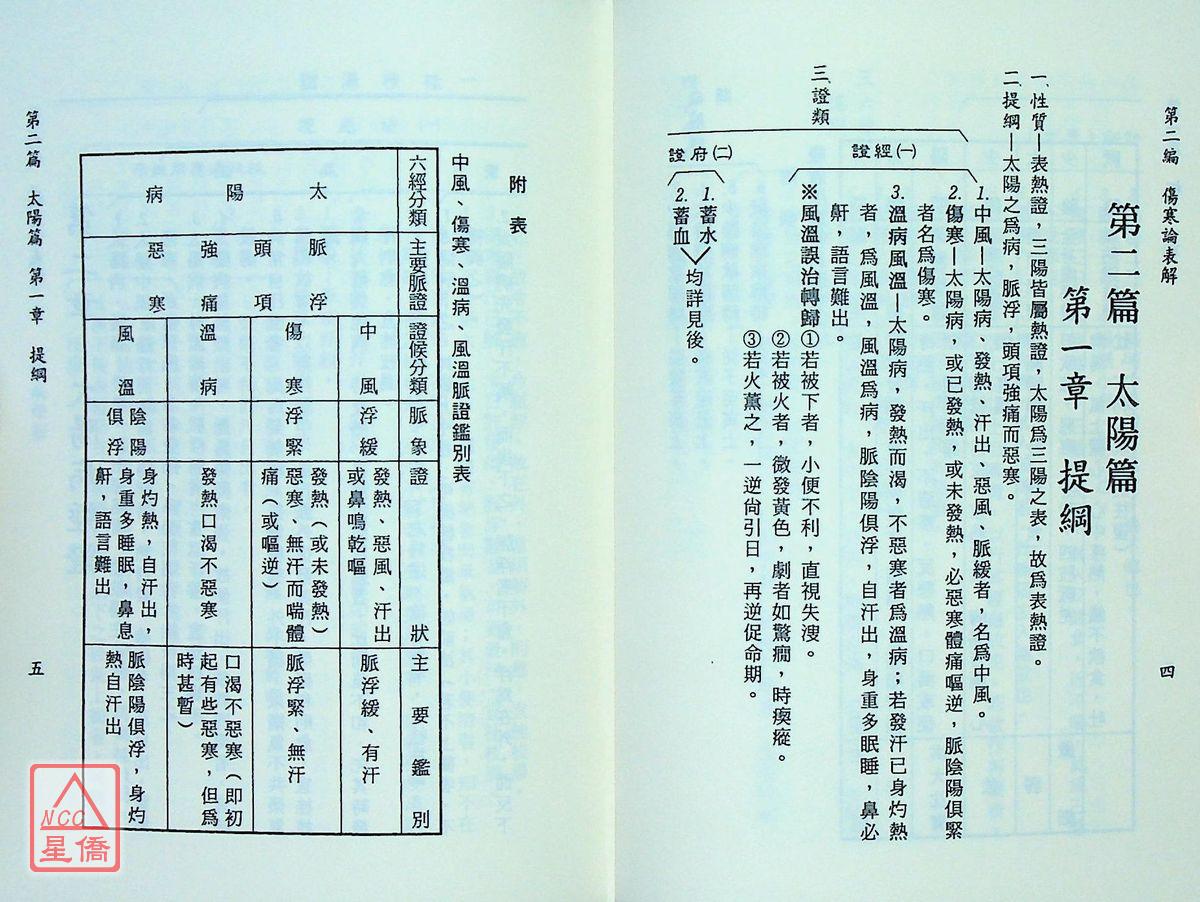 第二編　傷寒論表解
四
第二篇　太陽篇
第一章　提綱
一、性質—表熱證，三陽皆屬熱證，太陽爲三陽之表，故爲表熱證。
二、提綱—太陽之爲病，脈浮，頭項強痛而惡寒。
三、證類
㈠經證
1.中風—太陽病、發熱、汗出、惡風、脈緩者，名爲中風。
2.傷寒—太陽病，或已發熱，或未發熱，必惡寒體痛嘔逆，脈陰陽俱緊
者名爲傷寒。
3.溫病風溫—太陽病，發熱而渴，不惡寒者爲溫病；若發汗已身灼熱
者，爲風溫，風溫爲病，脈陰陽俱浮，自汗出，身重多眠睡，鼻必
鼾，語言難出。
※風溫誤治轉歸①若被下者，小便不利，直視失溲。
②若被火者，微發黃色，劇者如驚癎，時瘈瘲。
③若火薰之，一逆尙引日，再逆促命期。
㈡府證
1.蓄水
2.蓄血
均詳見後。
附表
中風、傷寒、溫病、風溫脈證鑑別表
六經分類
主要脈證
證候分類
脈象
證狀
主要鑑別
太陽病
脈浮
頭項
強痛
惡寒
中風
浮緩
發熱、惡風、汗出
或鼻鳴乾嘔
脈浮緩、有汗
傷寒
浮緊
發熱（或未發熱）
惡寒、無汗而喘體
痛（或嘔逆）
脈浮緊、無汗
溫病
發熱口渴不惡寒
口渴不惡寒（卽初
起有些惡寒，但爲
時甚暫）
風溫
陰陽
俱浮
身灼熱，自汗出，
身重多睡眠，鼻息
鼾，語言難出
脈陰陽俱浮，身灼
熱自汗出
第二篇　太陽篇　第一章　提綱
五
NCC
星僑